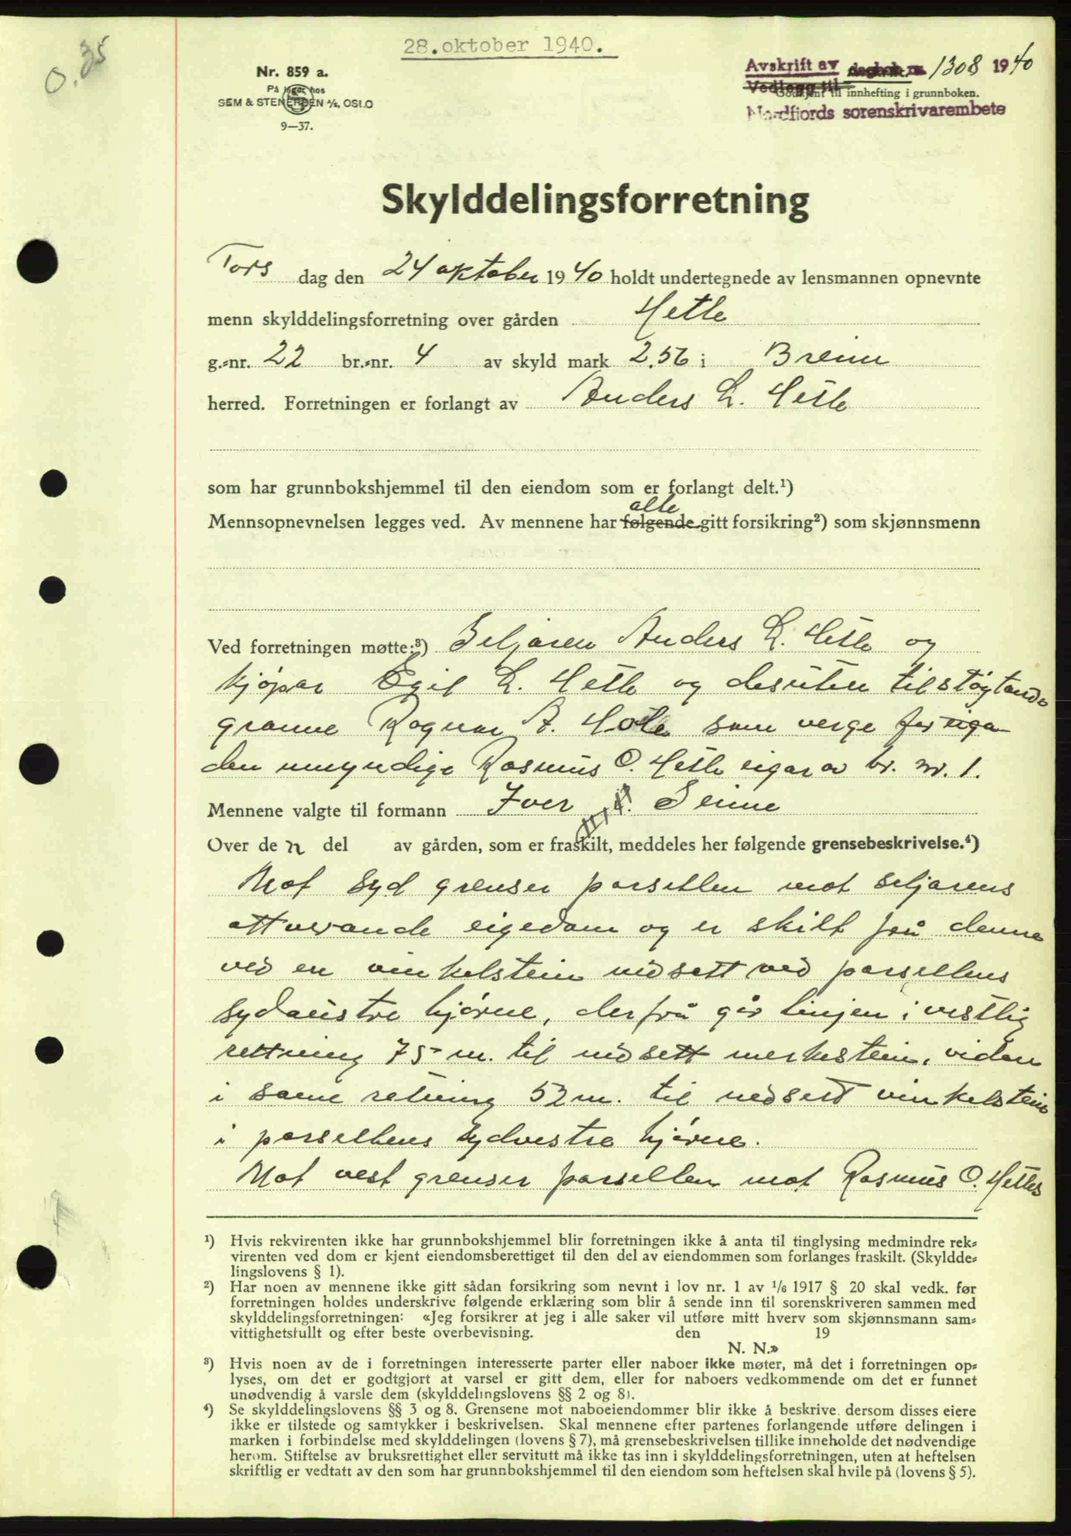 28.oktober 1940.
0.35
Nr. 859 a.
På lager hos
SEM & STENERSEN A/S, OSLO
9—37.
Avskrift av dagbok nr. 1308 1940
Vedlegg til
Godkjent til innhefting i grunnboken.
Nordfjords sorenskrivarembete
Skylddelingsforretning
Tors dag den 24 oktober 1940 holdt undertegnede av lensmannen opnevnte
menn skylddelingsforretning over gården Hetle
g.-nr. 22 br.-nr. 4 av skyld mark 2.56 i Breim
herred. Forretningen er forlangt av Anders L. Hetle
som har grunnbokshjemmel til den eiendom som er forlangt delt.¹)
alle
Mennsopnevnelsen legges ved. Av mennene har følgende gitt forsikring²) som skjønnsmenn
Ved forretningen møtte:³) Seljaren Anders L. Hetle og
kjøpar Egil L. Hetle og desuten tilstøytande
granne Ragnar A. Hole som verge for
den umyndige Rasmus O. Hetle eigar av br. nr. 1.
Mennene valgte til formann Iver Seime
Over de n del av gården, som er fraskilt, meddeles her følgende grensebeskrivelse.⁴)
Mot syd grenser parsellen mot seljarens
attverande eigedom og er skilt frå denne
ved en vinkelstein nedsett ved parsellens
sydaustre hjørne, derfrå går linjen i vestlig
rettning 75 m. til nedsett merkestein, vidare
i same retning 52 m. til nedsett vinkelstein
i parsellens sydvestre hjørne.
Mot vest grenser parsellen mot Rasmus O. Hetles
¹) Hvis rekvirenten ikke har grunnbokshjemmel blir forretningen ikke å anta til tinglysing medmindre rek-
virenten ved dom er kjent eiendomsberettiget til den del av eiendommen som forlanges fraskilt. (Skyldde-
lingslovens § 1).
²) Har noen av mennene ikke gitt sådan forsikring som nevnt i lov nr. 1 av 1/6 1917 § 20 skal vedk. før
forretningen holdes underskrive følgende erklæring som blir å sende inn til sorenskriveren sammen med
skylddelingsforretningen: «Jeg forsikrer at jeg i alle saker vil utføre mitt hverv som skjønnsmann sam-
vittighetsfullt og efter beste overbevisning. den 19
N. N.»
³) Hvis noen av de i forretningen interesserte parter eller naboer ikke møter, må det i forretningen op-
lyses, om det er godtgjort at varsel er gitt dem, eller for naboers vedkommende om det er funnet
unødvendig å varsle dem (skylddelingslovens §§ 2 og 8).
⁴) Se skylddelingslovens §§ 3 og 8. Grensene mot naboeiendommer blir ikke å beskrive, dersom disses eiere
ikke er tilstede og samtykker i beskrivelsen. Skal mennene efter partenes forlangende utføre delingen i
marken i forbindelse med skylddelingen (lovens § 7), må grensebeskrivelsen tillike inneholde det nødvendige
herom. Stiftelse av bruksrettighet eller servitutt må ikke tas inn i skylddelingsforretningen, uten at heftelsen
skriftlig er vedtatt av den som har grunnbokshjemmel til den eiendom som heftelsen skal hvile på (lovens § 5).